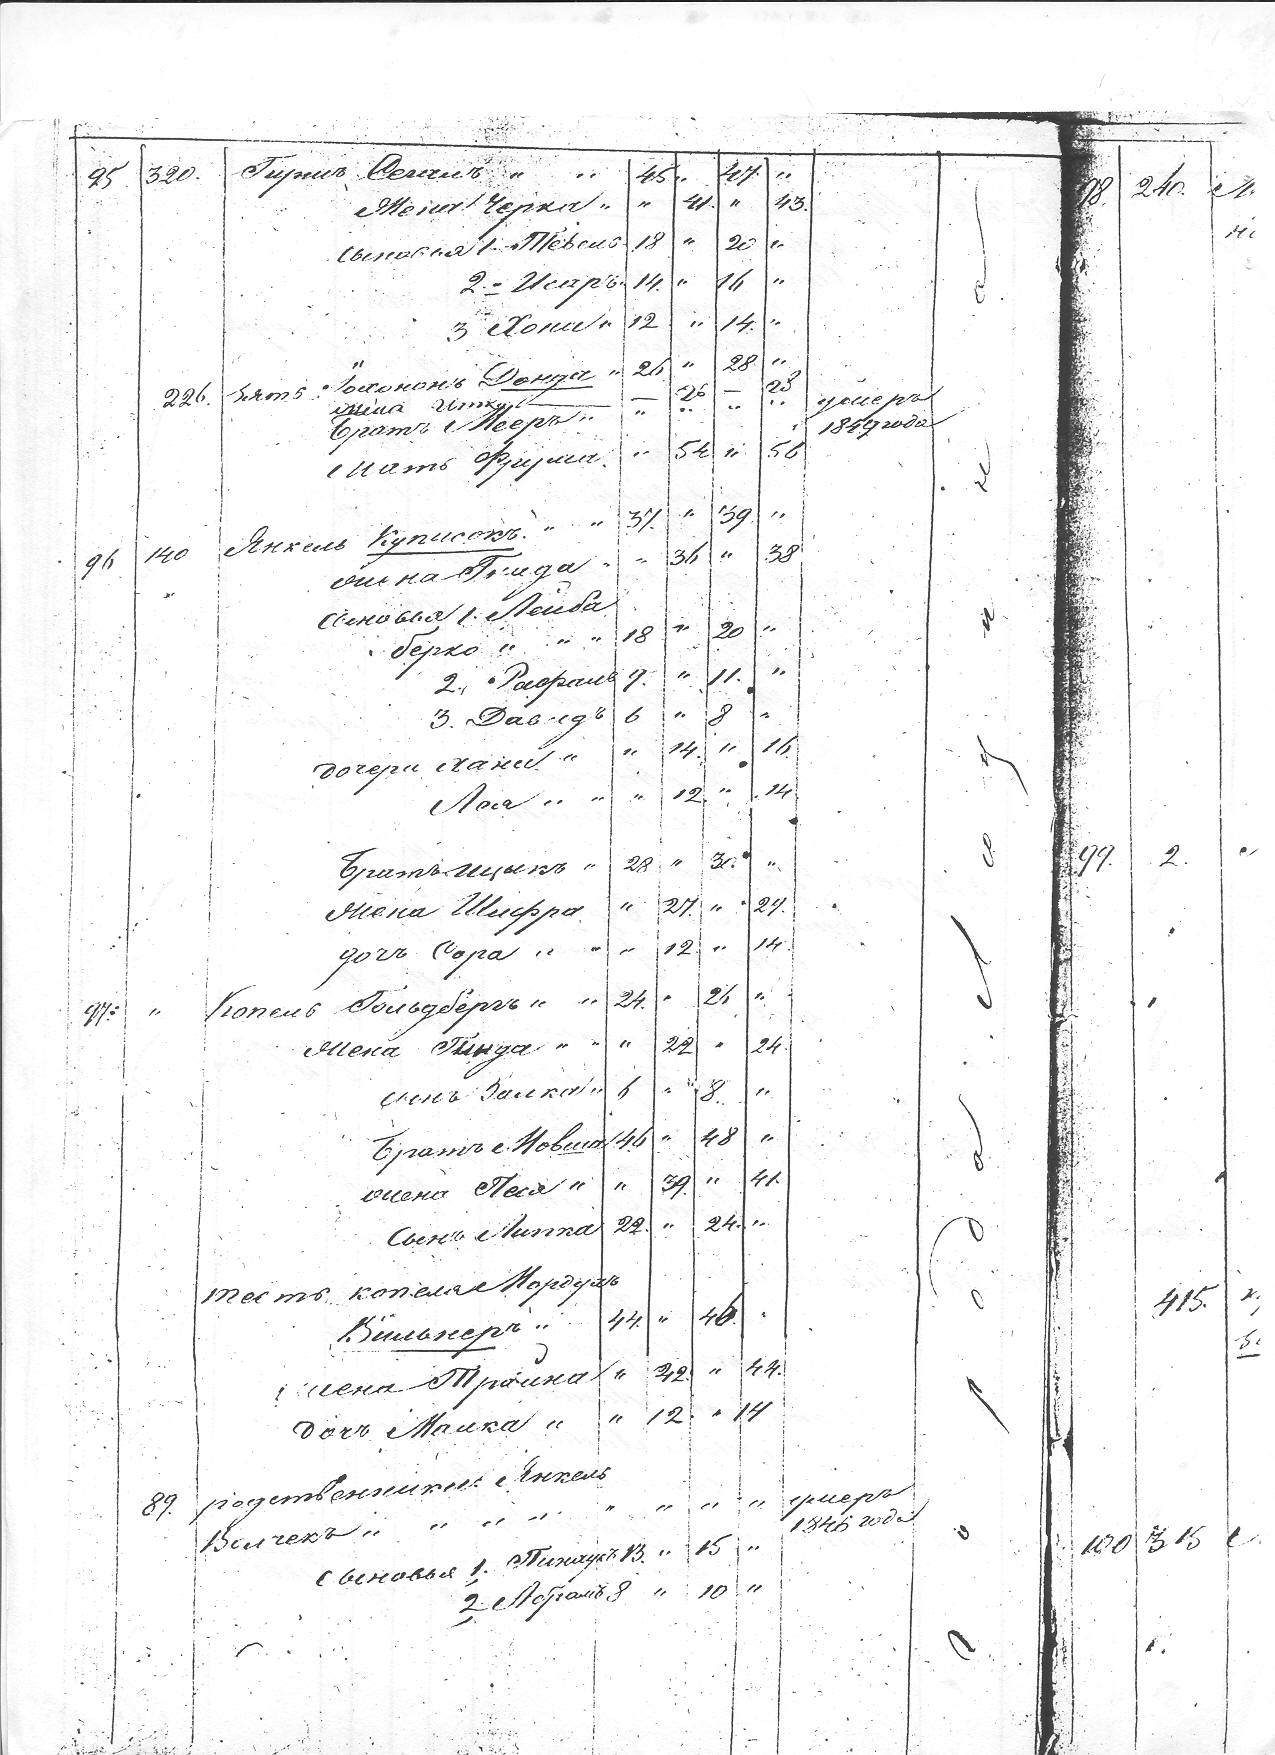 95 320. Гиршъ Сегалъ " " 45 " 47. "
Жена Черка " " 41. " 43.
сыновья 1. Тевель 18 " 20 "
2 - Исаръ 14. " 16 "
3 Хони " 12 " 14. "
226. зять Іохононъ Донда " 26 " 28 "
жена Итка — 26 — 28
Братъ Мееръ " " " " " умеръ 1849 года
Мать Фрума. " 54 " 56
96 140 Янкель Куписокъ. " " 37. " 39 "
жена Гинда " " 36 " 38
сыновья 1. Лейба
берко " " " 18 " 20 "
2. Рафаль 9. " 11. "
3. Давидъ 6 " 8 "
дочери Хана " " 14. " 16.
Лея " " " 12. " 14.
Братъ Ицыкъ " 28 " 30. "
Жена Шифра " 27. " 29.
дочь Сора " " " 12. " 14.
97. " Копель Гольдбергъ " " 24. " 26 "
Жена Гинда " " " 22 " 24.
сынъ Залка " 6 " 8. "
Братъ Мовша 46 " 48 "
жена Песя " " 39. " 41.
Сынъ Липка 22. " 24. "
тесть копеля Мордухъ
Вильнеръ " 44. " 46. "
жена Трайна " 42. " 44.
дочь Малка " " 12. " 14
89. родственникъ Янкель
Волчекъ " " " " " " " " умеръ 1846 года
сыновья 1. Пинхусъ 13. " 15 "
2 Абрамъ 8 " 10 "
98. 240.
99. 2.
415.
100 315